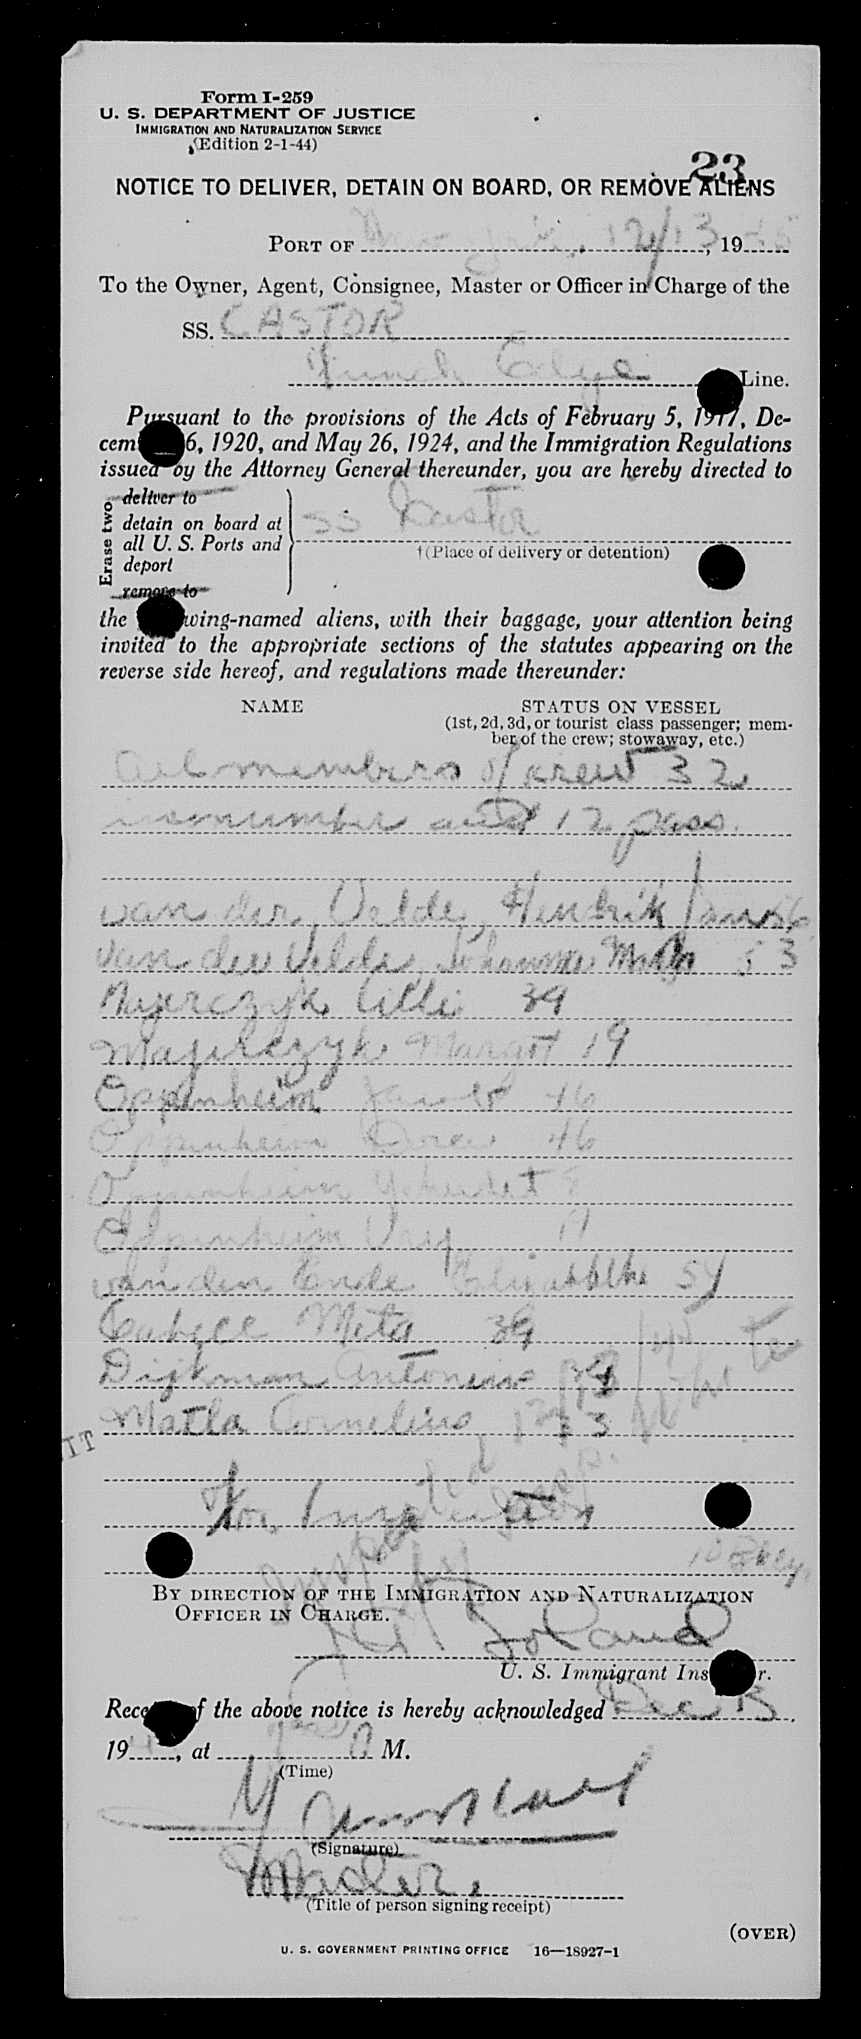 Form I-259
U. S. DEPARTMENT OF JUSTICE
IMMIGRATION AND NATURALIZATION SERVICE
(Edition 2-1-44)
23
NOTICE TO DELIVER, DETAIN ON BOARD, OR REMOVE ALIENS
PORT OF New York, 12/13, 1945
To the Owner, Agent, Consignee, Master or Officer in Charge of the
SS. CASTOR
Funch Edye Line.
Pursuant to the provisions of the Acts of February 5, 1917, De-
cem 6, 1920, and May 26, 1924, and the Immigration Regulations
issued by the Attorney General thereunder, you are hereby directed to
Erase two
deliver to
detain on board at
all U. S. Ports and
deport
remove to
SS Castor
†(Place of delivery or detention)
the wing-named aliens, with their baggage, your attention being
invited to the appropriate sections of the statutes appearing on the
reverse side hereof, and regulations made thereunder:
NAME STATUS ON VESSEL
(1st, 2d, 3d, or tourist class passenger; mem-
ber of the crew; stowaway, etc.)
All members of crew 32
in number and 12 pass.
van der Velde, Hendrik 56
van der Velde, 53
Lilli 39
Margot 19
Oppenheim 46
Oppenheim Dora 46
Oppenheim
Oppenheim
van den Ende 54
Meta 39
Dijkman Antonius
Matla Cornelius
For
Inspected
by
BY DIRECTION OF THE IMMIGRATION AND NATURALIZATION
OFFICER IN CHARGE.
Boland
U. S. Immigrant Ins r.
Rece f the above notice is hereby acknowledged Dec 13,
19 , at M.
(Time)
(Signature)
Master.
(Title of person signing receipt)
(OVER)
U. S. GOVERNMENT PRINTING OFFICE 16—18927-1